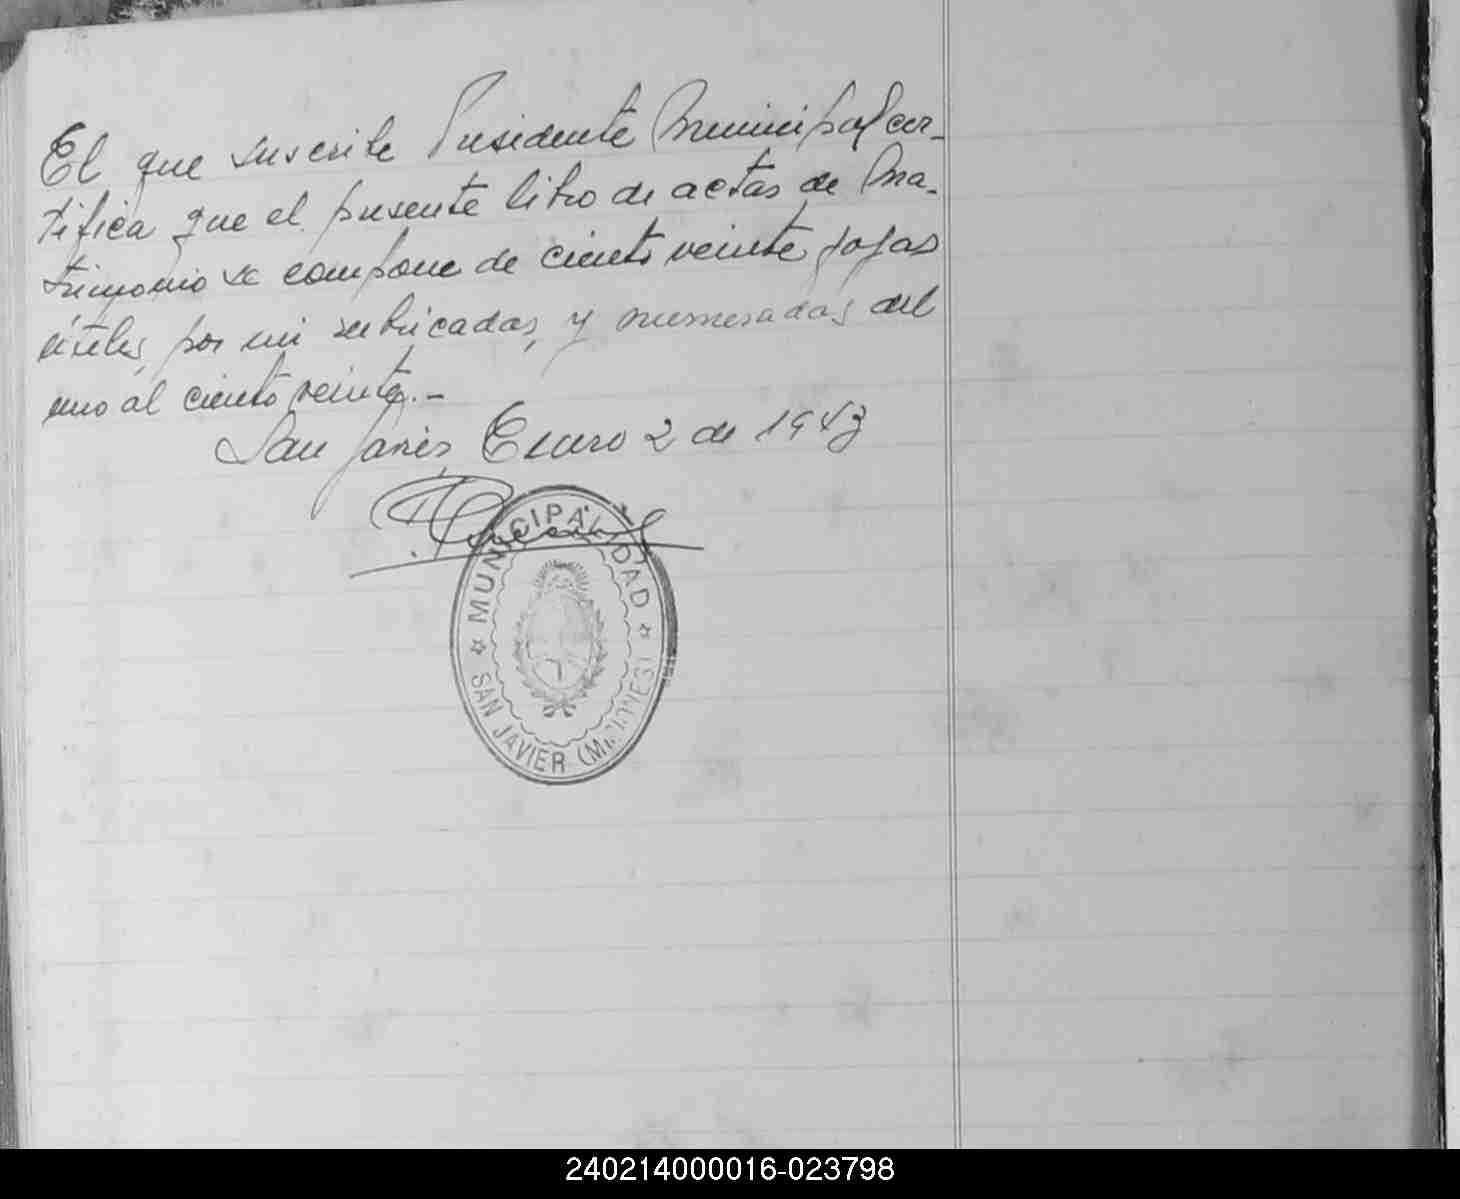 El que suscribe Presidente Municipal cer-
tifica que el presente libro de actas de Ma-
trimonio se compone de ciento veinte fojas
útiles, por mi rubricadas, y numeradas del
uno al ciento veinte.-
San Javier, Enero 2 de 1943
MUNICIPALIDAD
SAN JAVIER (MISIONES)
240214000016-023798